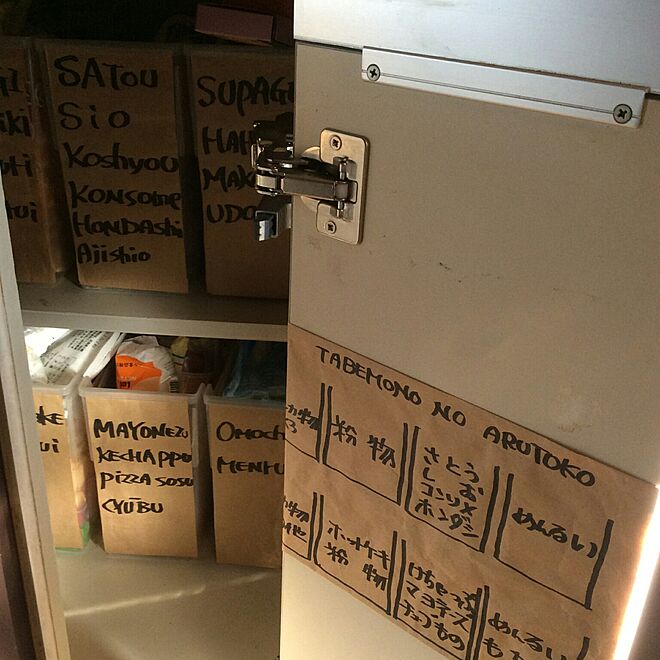 SATOU
Sio
Koshyou
KONSOME
HONDASHi
Ajishio
SUPAG
HAH
MAK
UDO
MAYONEZU
KECHAPPU
PIZZA SOSU
CYŪBU
OMOCH
MENRU
TABEMONO NO ARUTOKO
粉物
さとう
しお
コンソメ
ホンダシ
めんるい
ホットケキ
粉物
けちゃっぷ
マヨネーズ
チューブもの
めんるい
も